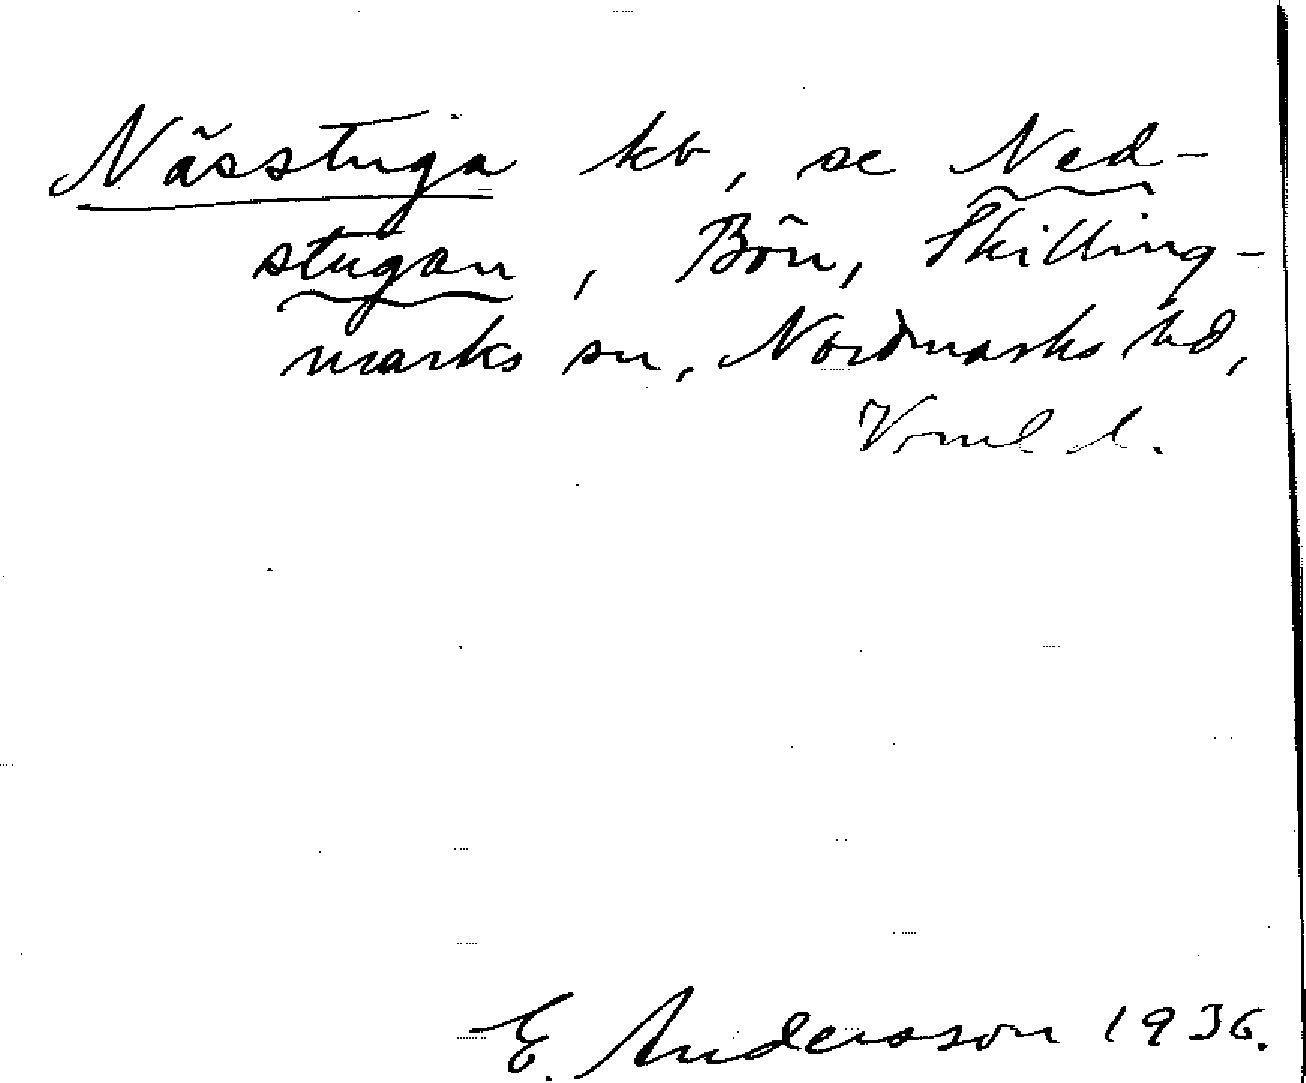 Nässtuga kb, se Ned-
stugan, Bön, Skilling-
marks sn, Nordmarks hd,
Vrml l.
E. Andersson 1936.